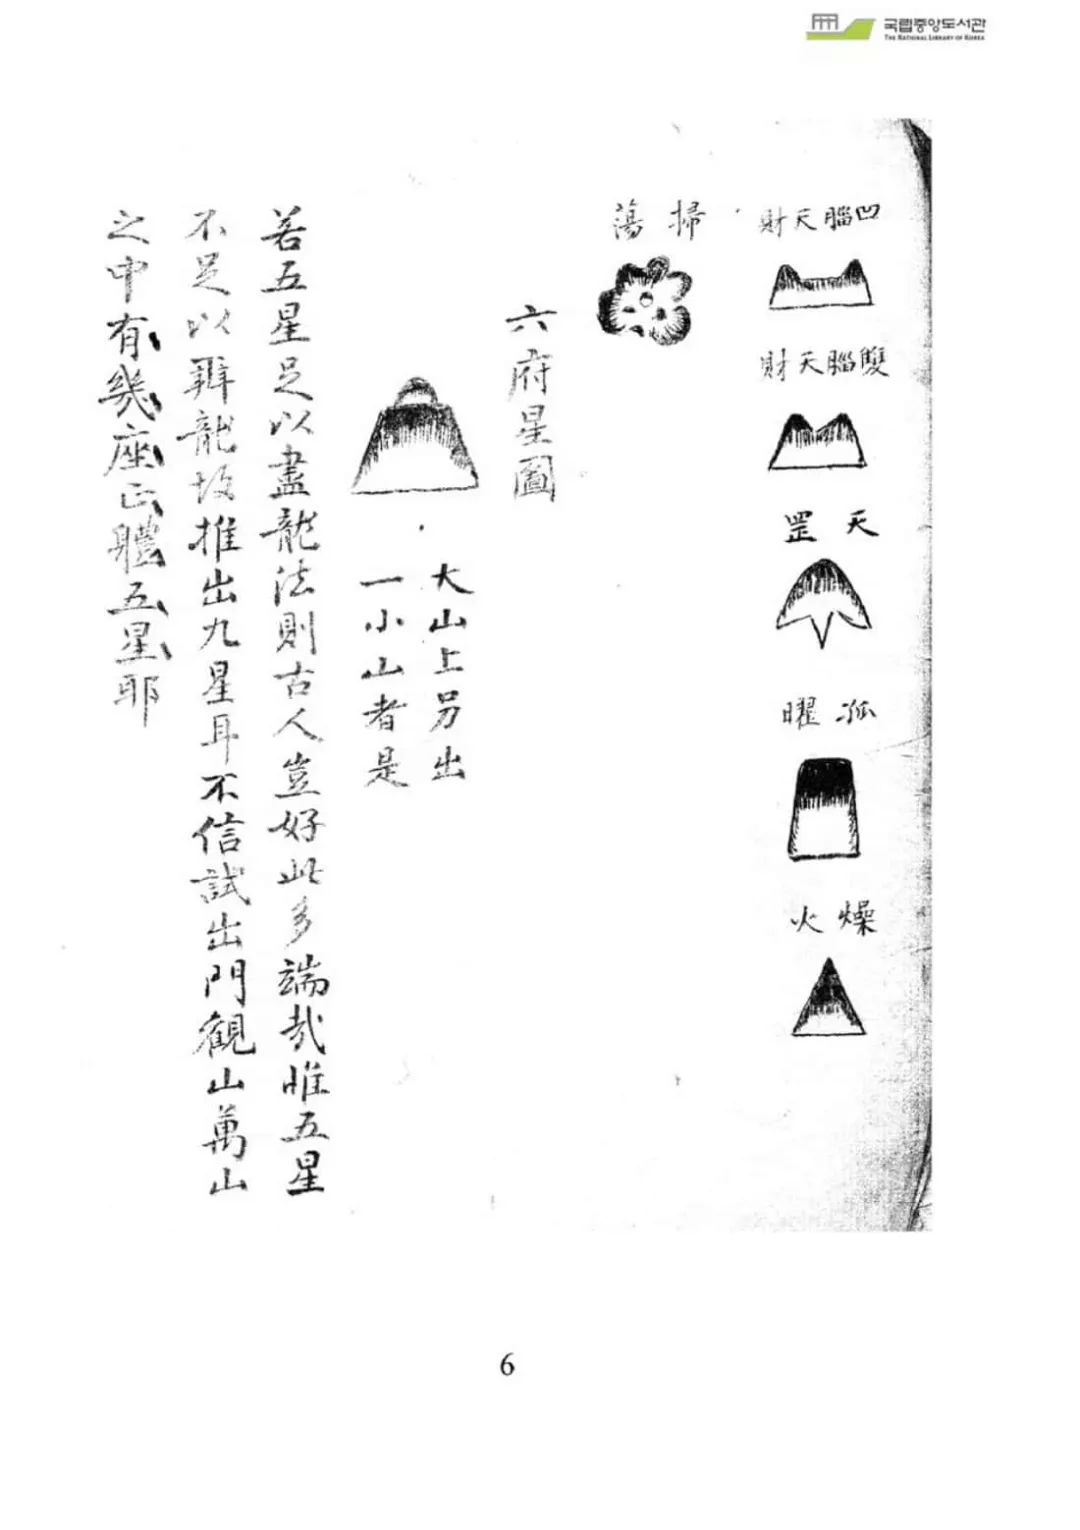 국립중앙도서관
THE NATIONAL LIBRARY OF KOREA
凹腦天財
雙腦天財
天罡
孤曜
燥火
掃蕩
六府星圖
大山上另出
一小山者是
若五星足以盡龍法則古人豈好此多端哉惟五星
不足以辨龍故推出九星耳不信試出門觀山萬山
之中有幾座正體五星耶
6